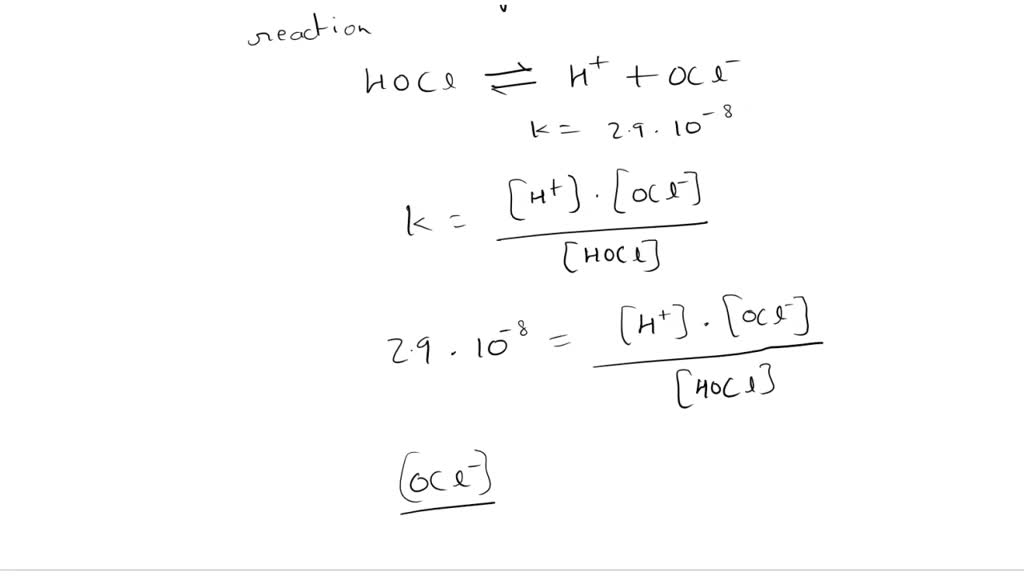 reaction
HOCl ⇌ H⁺ + OCl⁻
k = 2.9 · 10⁻⁸
k = [H⁺] · [OCl⁻] / [HOCl]
2.9 · 10⁻⁸ = [H⁺] · [OCl⁻] / [HOCl]
[OCl⁻]